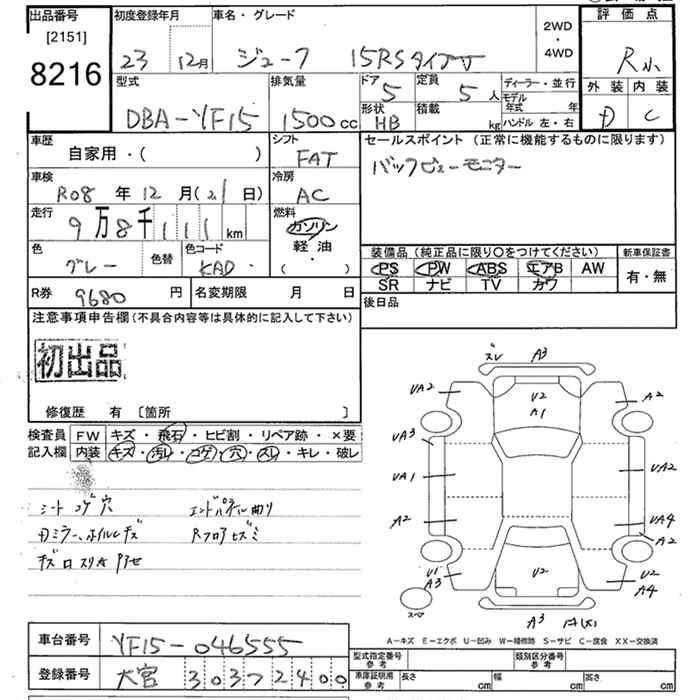 出品番号 初度登録年月 車名・グレード 2WD・4WD 評価点
[2151]
8216
23 12月 ジューク 15RSタイプV R小
型式 排気量 ドア 定員 ディーラー・並行 外装 内装
DBA-YF15 1500cc 5 5人 モデル年式 年
形状 積載 kg ハンドル 左・右
HB C
車歴 シフト セールスポイント (正常に機能するものに限ります)
自家用・( ) FAT バックビューモニター
車検 冷房
R08年 12月(21日) AC
走行 燃料
9万8千111km ガソリン
軽油
・( )
色 色替 色コード 装備品(純正品に限り○をつけてください) 新車保証書
グレー KAD PS PW ABS エアB AW 有・無
SR ナビ TV カワ
R券 9680円 名変期限 月 日 後日品
注意事項申告欄(不具合内容等は具体的に記入して下さい)
初出品
修復歴 有 〔箇所 〕
検査員 FW キズ・飛石・ヒビ割・リペア跡・×要
記入欄 内装 キズ・汚レ・コゲ・穴・スレ・キレ・破レ
シート コゲ穴 エンドパネル曲り
ミラー、ホイルキズ Rフロアヒズミ
ズレ A3
UA2 U2 A2
A1
UA3
UA1 UA2
A2 UA4
A2
U1 U2 U2
A3 A4
スペア A3
A-キズ E-エクボ U-凹み W-補修跡 S-サビ C-腐食 XX-交換済
車台番号 YF15-046555
型式指定番号 参考 類別区分番号 参考
登録番号 大宮 303 7 2400
車庫証明用 参考 長さ cm 幅 cm 高さ cm